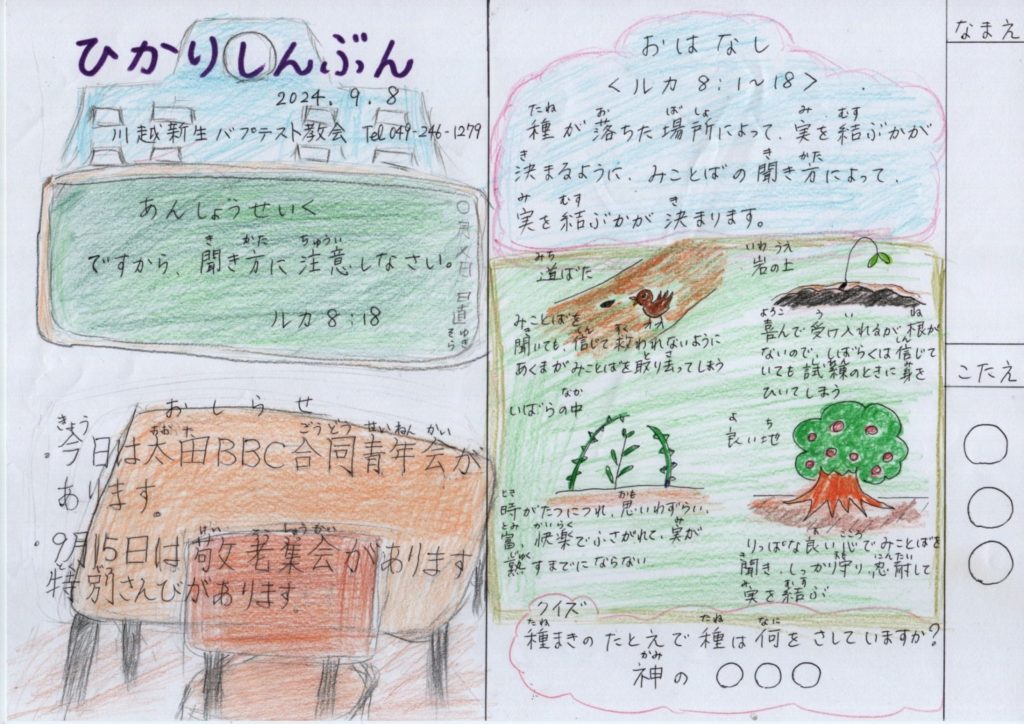 ひかりしんぶん
2024.9.8
川越新生バプテスト教会 Tel 049-246-1279
あんしょうせいく
ですから、聞き方に注意しなさい。
ルカ 8:18
○月×日 日直 ゆき そら
おしらせ
・今日は太田BBC合同青年会が
あります。
・9月15日は敬老集会があります
特別さんびがあります。
おはなし
<ルカ 8:1~18>
種が落ちた場所によって、実を結ぶかが
決まるように、みことばの聞き方によって、
実を結ぶかが決まります。
道ばた
みことばを
聞いても、信じて救われないように
あくまがみことばを取り去ってしまう
岩の上
喜んで受け入れるが根が
ないので、しばらくは信じて
いても試練のときに身を
ひいてしまう
いばらの中
時がたつにつれ、思いわずらい、
富、快楽でふさがれて、実が
熟すまでにならない
良い地
りっぱな良い心でみことばを
聞き、しっかり守り、忍耐して
実を結ぶ
クイズ
種まきのたとえで種は何をさしていますか?
神の ○○○
なまえ
こたえ